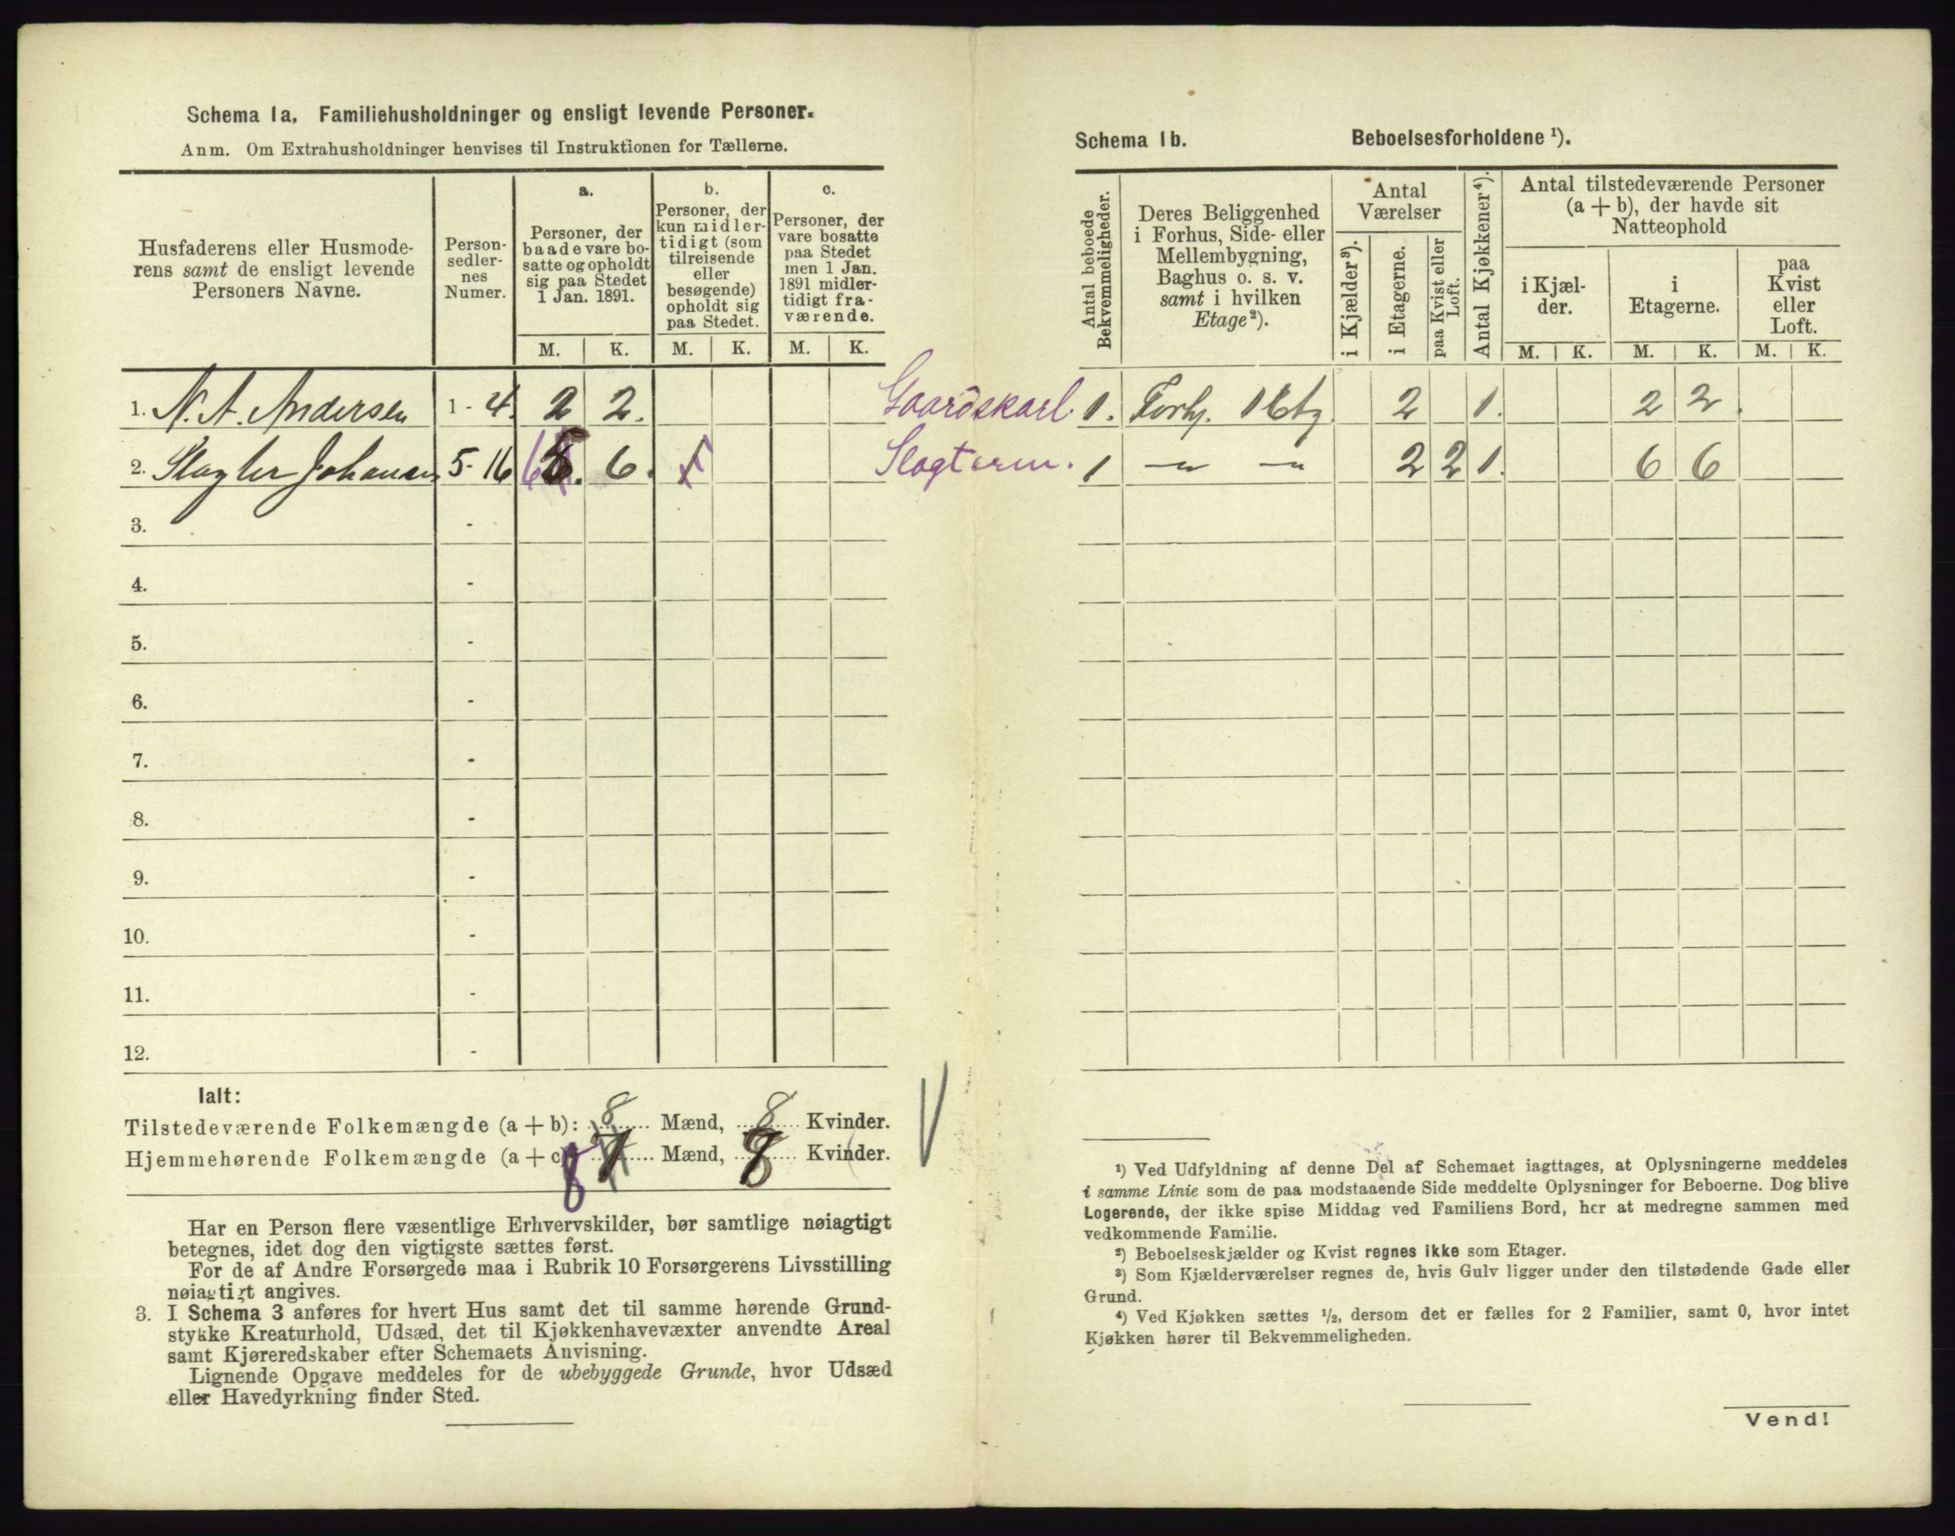 Schema 1a. Familiehusholdninger og ensligt levende Personer.
Anm. Om Extrahusholdninger henvises til Instruktionen for Tællerne.
Husfaderens eller Husmoderens samt de ensligt levende Personers Navne.
Personsedlernes Numer.
a.
Personer, der baade vare bosatte og opholdt sig paa Stedet 1 Jan. 1891.
b.
Personer, der kun midlertidigt (som tilreisende eller besøgende) opholdt sig paa Stedet.
c.
Personer, der vare bosatte paa Stedet men 1 Jan. 1891 midlertidigt fraværende.
M. K. M. K. M. K.
1. N. A. Andersen 1 - 4. 2 2. Gaardskarl.
2. Slagter Johansen 5 - 16 6 6. Slagterm.
3. -
4. -
5. -
6. -
7. -
8. -
9. -
10. -
11. -
12. -
Ialt:
Tilstedeværende Folkemængde (a + b): 8 Mænd, 8 Kvinder.
Hjemmehørende Folkemængde (a + c) 8 7 Mænd, 8 Kvinder.
Har en Person flere væsentlige Erhvervskilder, bør samtlige nøiagtigt
betegnes, idet dog den vigtigste sættes først.
For de af Andre Forsørgede maa i Rubrik 10 Forsørgerens Livsstilling
nøiagtigt angives.
3. I Schema 3 anføres for hvert Hus samt det til samme hørende Grund-
stykke Kreaturhold, Udsæd, det til Kjøkkenhavevæxter anvendte Areal
samt Kjøreredskaber efter Schemaets Anvisning.
Lignende Opgave meddeles for de ubebyggede Grunde, hvor Udsæd
eller Havedyrkning finder Sted.
Schema 1b. Beboelsesforholdene ¹).
Antal beboede Bekvemmeligheder.
Deres Beliggenhed i Forhus, Side- eller Mellembygning, Baghus o. s. v. samt i hvilken Etage²).
Antal Værelser
i Kjælder³).
i Etagerne.
paa Kvist eller Loft.
Antal Kjøkkener⁴).
Antal tilstedeværende Personer (a + b), der havde sit Natteophold
i Kjælder.
i Etagerne.
paa Kvist eller Loft.
M. K. M. K. M. K.
1. Forh. 1 Etg 2 1. 2 2.
1 — " — " 2 2 1. 6 6
¹) Ved Udfyldning af denne Del af Schemaet iagttages, at Oplysningerne meddeles
i samme Linie som de paa modstaaende Side meddelte Oplysninger for Beboerne. Dog blive
Logerende, der ikke spise Middag ved Familiens Bord, her at medregne sammen med
vedkommende Familie.
²) Beboelseskjælder og Kvist regnes ikke som Etager.
³) Som Kjælderværelser regnes de, hvis Gulv ligger under den tilstødende Gade eller
Grund.
⁴) Ved Kjøkken sættes ½, dersom det er fælles for 2 Familier, samt 0, hvor intet
Kjøkken hører til Bekvemmeligheden.
Vend!